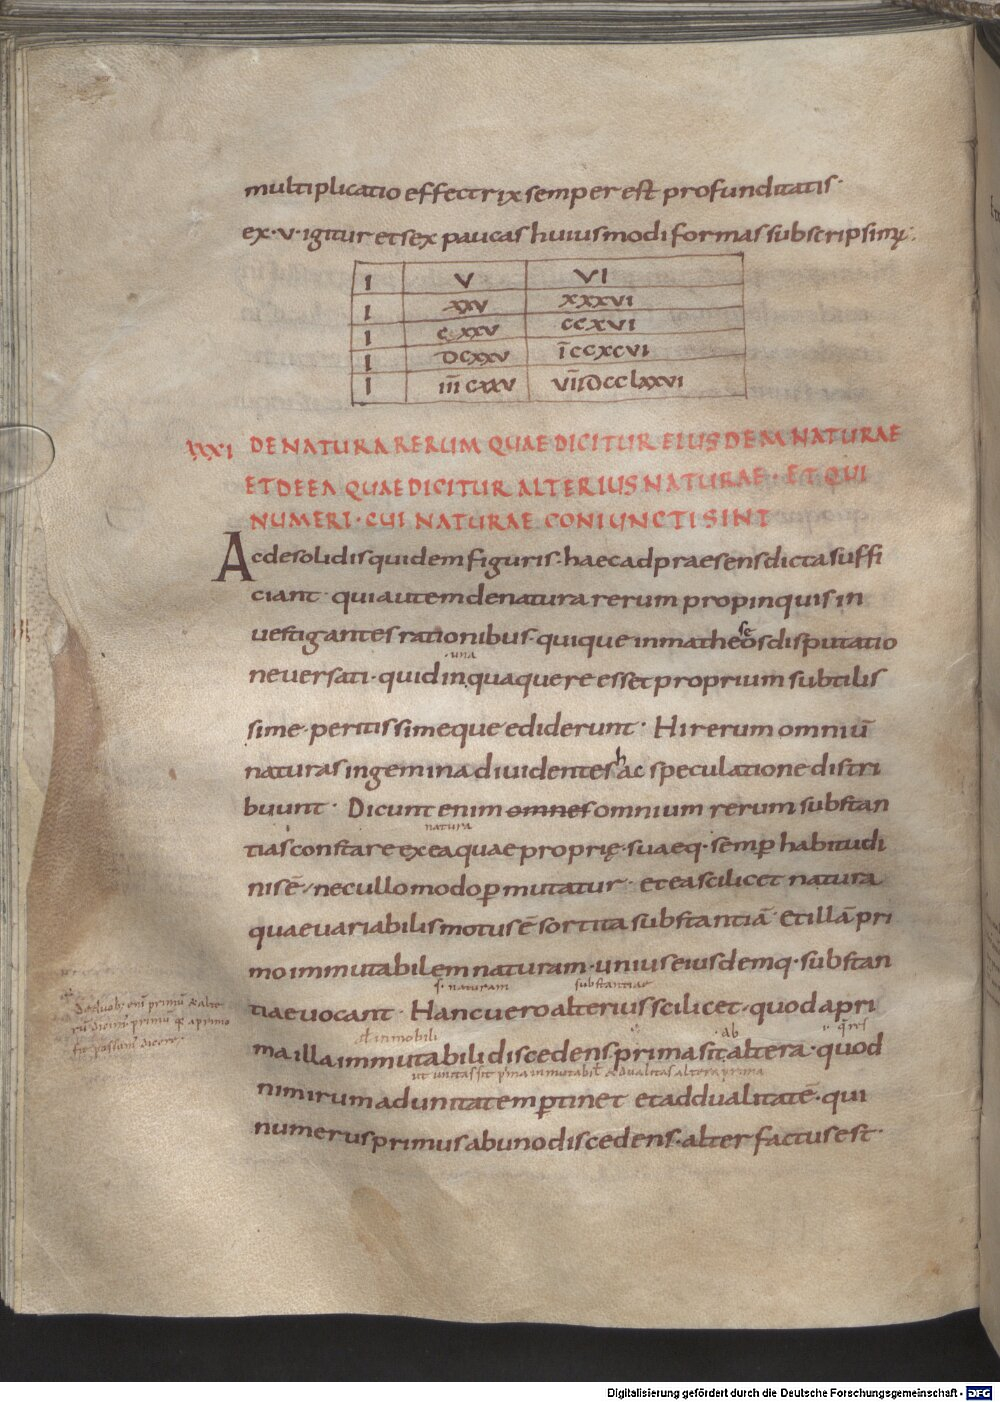 multiplicatio effectrix semper est profunditatis·
ex·v·igitur et sex paucas huiusmodi formas subscripsim;
I V VI
I XXV XXXVI
I CXXV CCXVI
I DCXXV ĪCCXCVI
I III̅CXXV VII̅DCCLXXVI
XXXI DE NATURA RERUM QUAE DICITUR EIUSDEM NATURAE
ET DE EA QUAE DICITUR ALTERIUS NATURAE · ET QUI
NUMERI · CUI NATURAE CONIUNCTI SINT
Ac de solidis quidem figuris·haec ad praesens dicta suffi
ciant· qui autem de natura rerum propinquis in
vestigantes rationibus·quique in matheseos disputatio
una
ne versati·quid in quaque re esset proprium subtilis
sime·peritissimeque ediderunt· Hi rerum omniū
naturas in gemina dividentes hac speculatione distri
buunt· Dicunt enim omnes omnium rerum substan
natura
tias constare ex ea quae proprię·suaeq·semp̱ habitudi
nis ē·nec ullo modo p̱mutatur· et ea scilicet natura
quae variabilis motus ē sortita substantiā et illā pri
mo immutabilem naturam·unius eiusdemq·substan
s· naturam substantiae
tiae vocant· Hanc vero alterius scilicet·quod a pri
inmobili ab
ma illa immutabili discedens prima sit altera·quod
ut unitas sit p̄ma inmutabil et dualitas altera prima
nimirum ad unitatem p̱tinet et ad dualitatē·qui
numerus primus ab uno discedens·alter factus est·
Digitalisierung gefördert durch die Deutsche Forschungsgemeinschaft · DFG